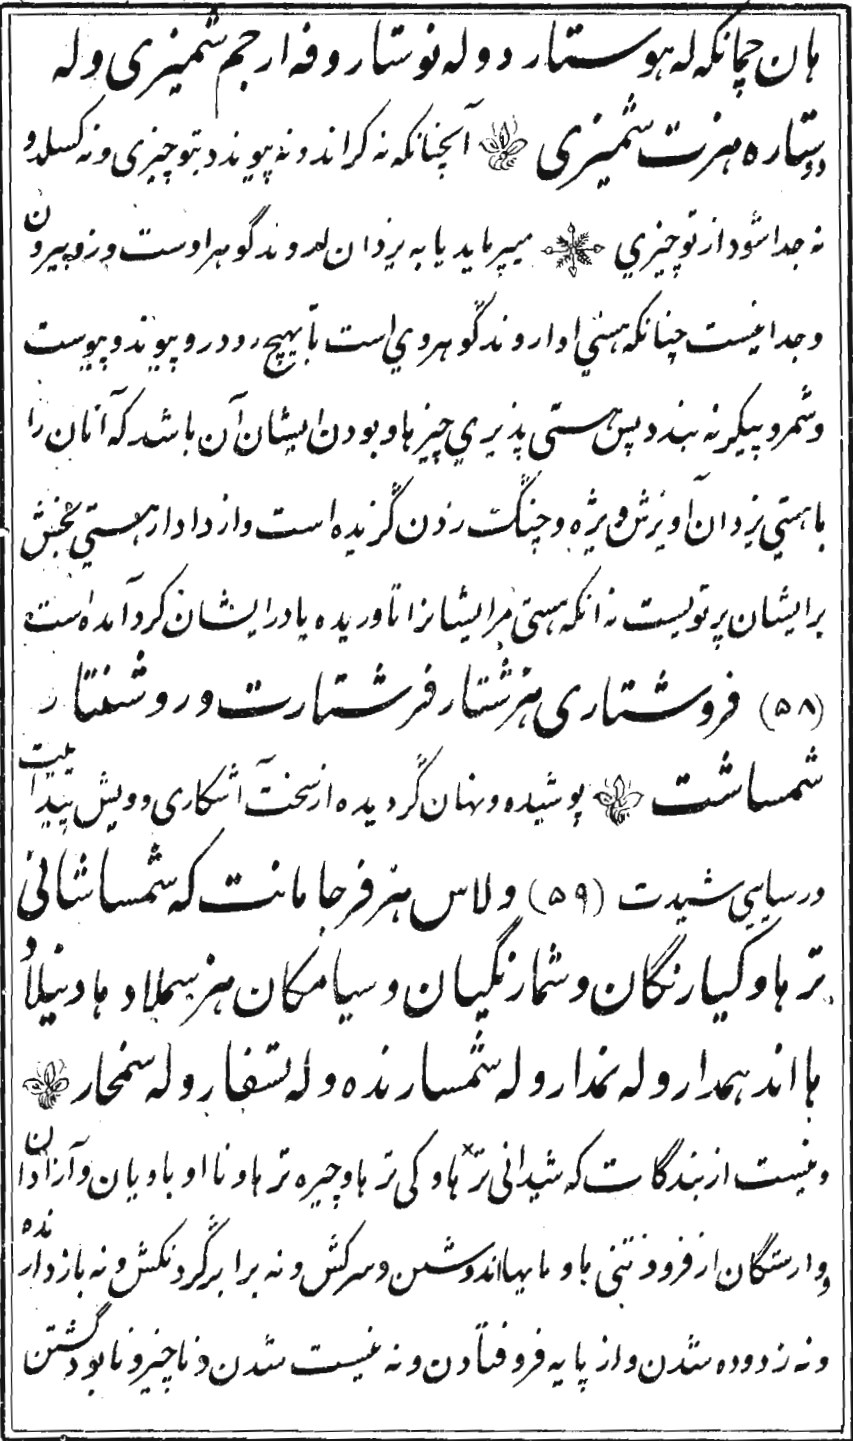 هان چمانکه له هوستار دوله نوستار وفه ارجم شمیزی وله
دوستاره هنرت شمیزی آنچنانکه نه کراند ونه پیوندد بتو چیزی ونه کسلد و
نه جدا شود از تو چیزي میپرماید یا به یزدان اروند گوهر اوست وزو بیرون
وجدا نیست چنانکه هستي او اروند گوهر وي است تا بهیچ رو درو پیوند وپیوست
وشمر وپیکر نه بندد پس هستی پذیري چیزها وبودن ایشان آن باشد که آنان را
با هستي یزدان آویزش ویژه وچنگ زدن گزیده است واز دادار هستي بخش
بر ایشان پرتویست نه آنکه هستی مرایشانرا تاوریده یا در ایشان گرد آمده است
(۵۸) فروشتاری هزشتار فرشتارت ورو شفتار
شمساشت پوشیده ونهان گردیده از سخت آشکاری وویش پیدائیت
ورسایي شیدت (۵۹) ولاس هنر فرجامانت که شمساشانی
ترها وکیارنگان وشمارنگیان وسیامکان هنر سملاد هاد نیلاد
ها اند همدار وله نمدار وله شمسارنده وله لتفار وله سنمحار
ونیست از بندگانت که شیدانی ترها وکی ترها وچیره ترها ونا او باویان وآزادان
ووارستگان از فرودتنی باو مایها اند دشمن وسرکش ونه برابر گردنکش ونه بازدارنده
ونه زدوده شدن واز پایه فرو فتادن ونه نیست شدن ونا چیز ونابود گشتن